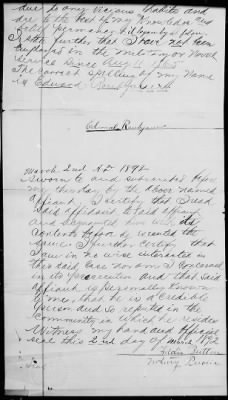 due to any vicious habits and
due to the best of my Knowledge and
belief permanent
I state further that I have not been
employed in the military or Naval
Service Since Aug 11 1865
The correct spelling of my Name
is Edward
Edward
March 2nd AD 1892
Sworn to and subscribed before
me this day by the above named
affiant. I certify that I read
said affidavit to said affiant
and acquainted him with its
contents before he executed the
same. I further certify that
I am in no wise interested in
this said case nor am I concerned
in its prosecution and that said
affiant is personally known
to me, that he is a credible
person and so reputed in the
community in which he resides
Witness my hand and official
seal this 2nd day of March 1892
Notary Public